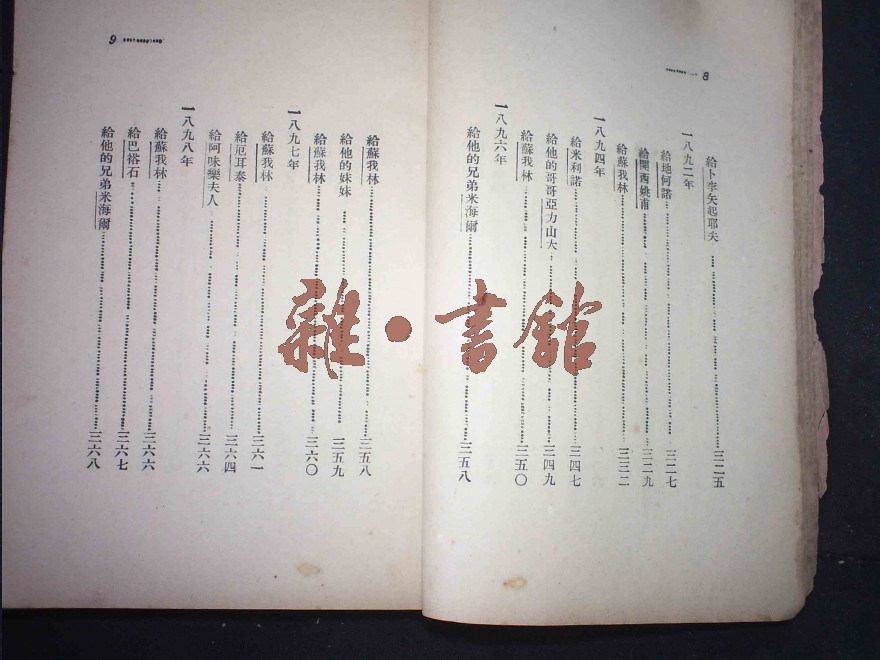 8
給卜李矢起耶夫 三二五
一八九二年
給地何諾 三二七
給開西姚甫 三二九
給蘇我林 三三二
一八九四年
給米利諾 三四七
給他的哥哥亞力山大 三四九
給蘇我林 三五〇
一八九六年
給他的兄弟米海爾 三五八
9
給蘇我林 三五八
給他的妹妹 三五九
給蘇我林 三六〇
一八九七年
給蘇我林 三六一
給厄耳泰 三六四
給阿味樂夫人 三六六
一八九八年
給蘇我林 三六六
給巴裕石 三六七
給他的兄弟米海爾 三六八
雜·書館